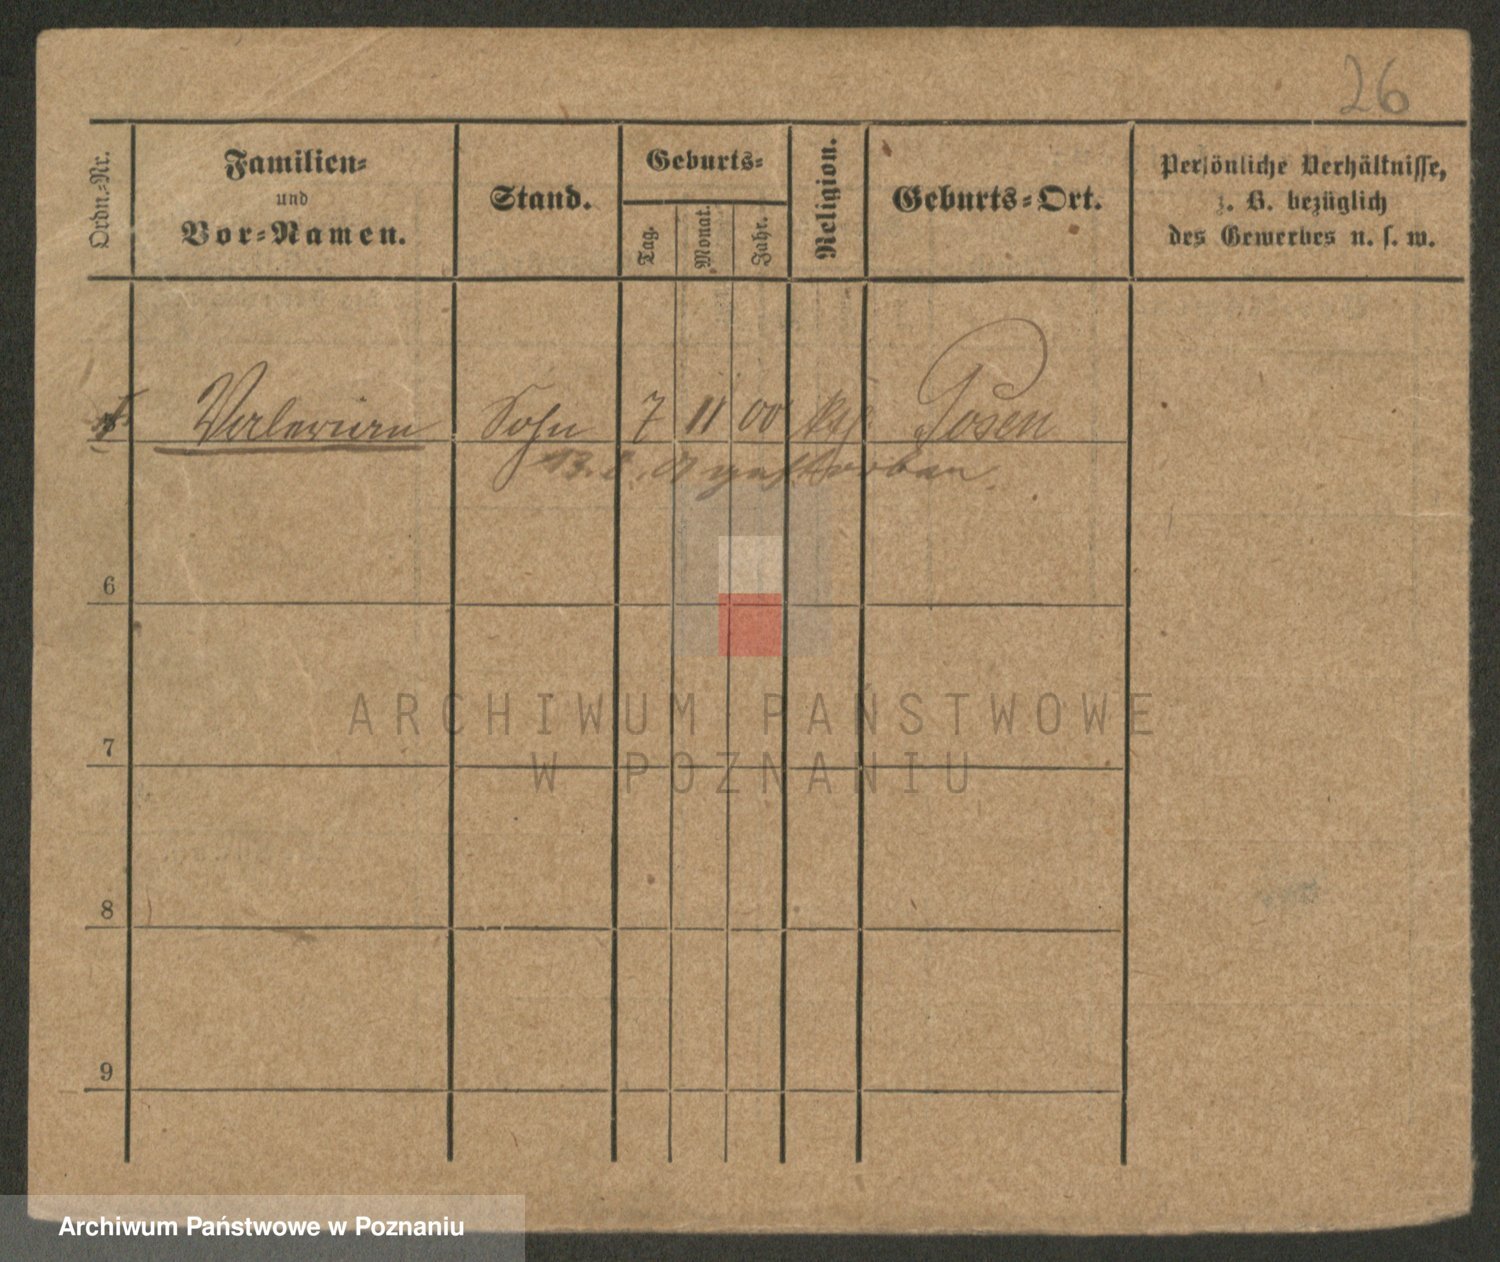 26
Ordn.-Nr.
Familien-
und
Vor-Namen.
Stand.
Geburts-
Tag.
Monat.
Jahr.
Religion.
Geburts-Ort.
Persönliche Verhältnisse,
z. B. bezüglich
des Gewerbes u. s. w.
Valerian Sohn 7 11 00 Posen
gestorben.
6
7
8
9
ARCHIWUM PAŃSTWOWE
W POZNANIU
Archiwum Państwowe w Poznaniu